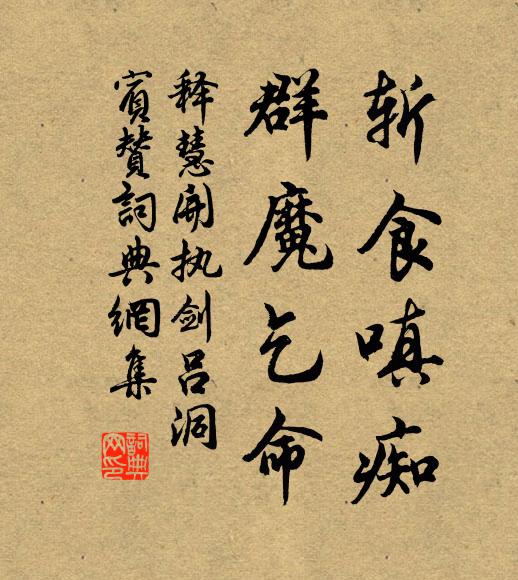 斩食嗔痴
群魔乞命
释慧开执剑吕洞
宾赞词典网集
词典
网印